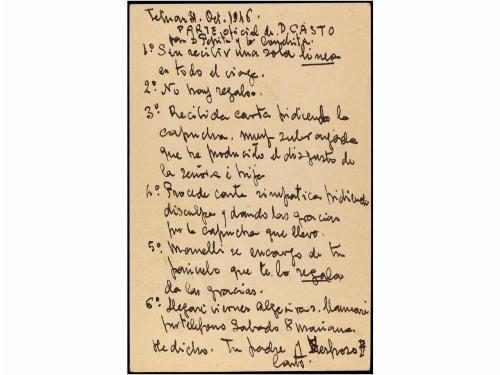 Tetuan 31. Oct. 1916.
PARTE oficial de D. CASTO
para Dª Pepita y la Conchita
1º Sin recibir una sola linea
en todo el viage.
2º No hay regalos.
3º Recibida carta pidiendo la
capucha, muy subrayada
que ha producido el disgusto de
la señora é hija
4º Procede carta simpatica pidiendo
disculpa y dando las gracias
por la capucha que llevo.
5º Mamelli se encargo de tu
pañuelo que te lo regala
da las gracias.
6º Llegaré viernes Algeciras. Llamaré
por telefono Sabado 8 mañana
He dicho. Tu padre y esposo
Casto.